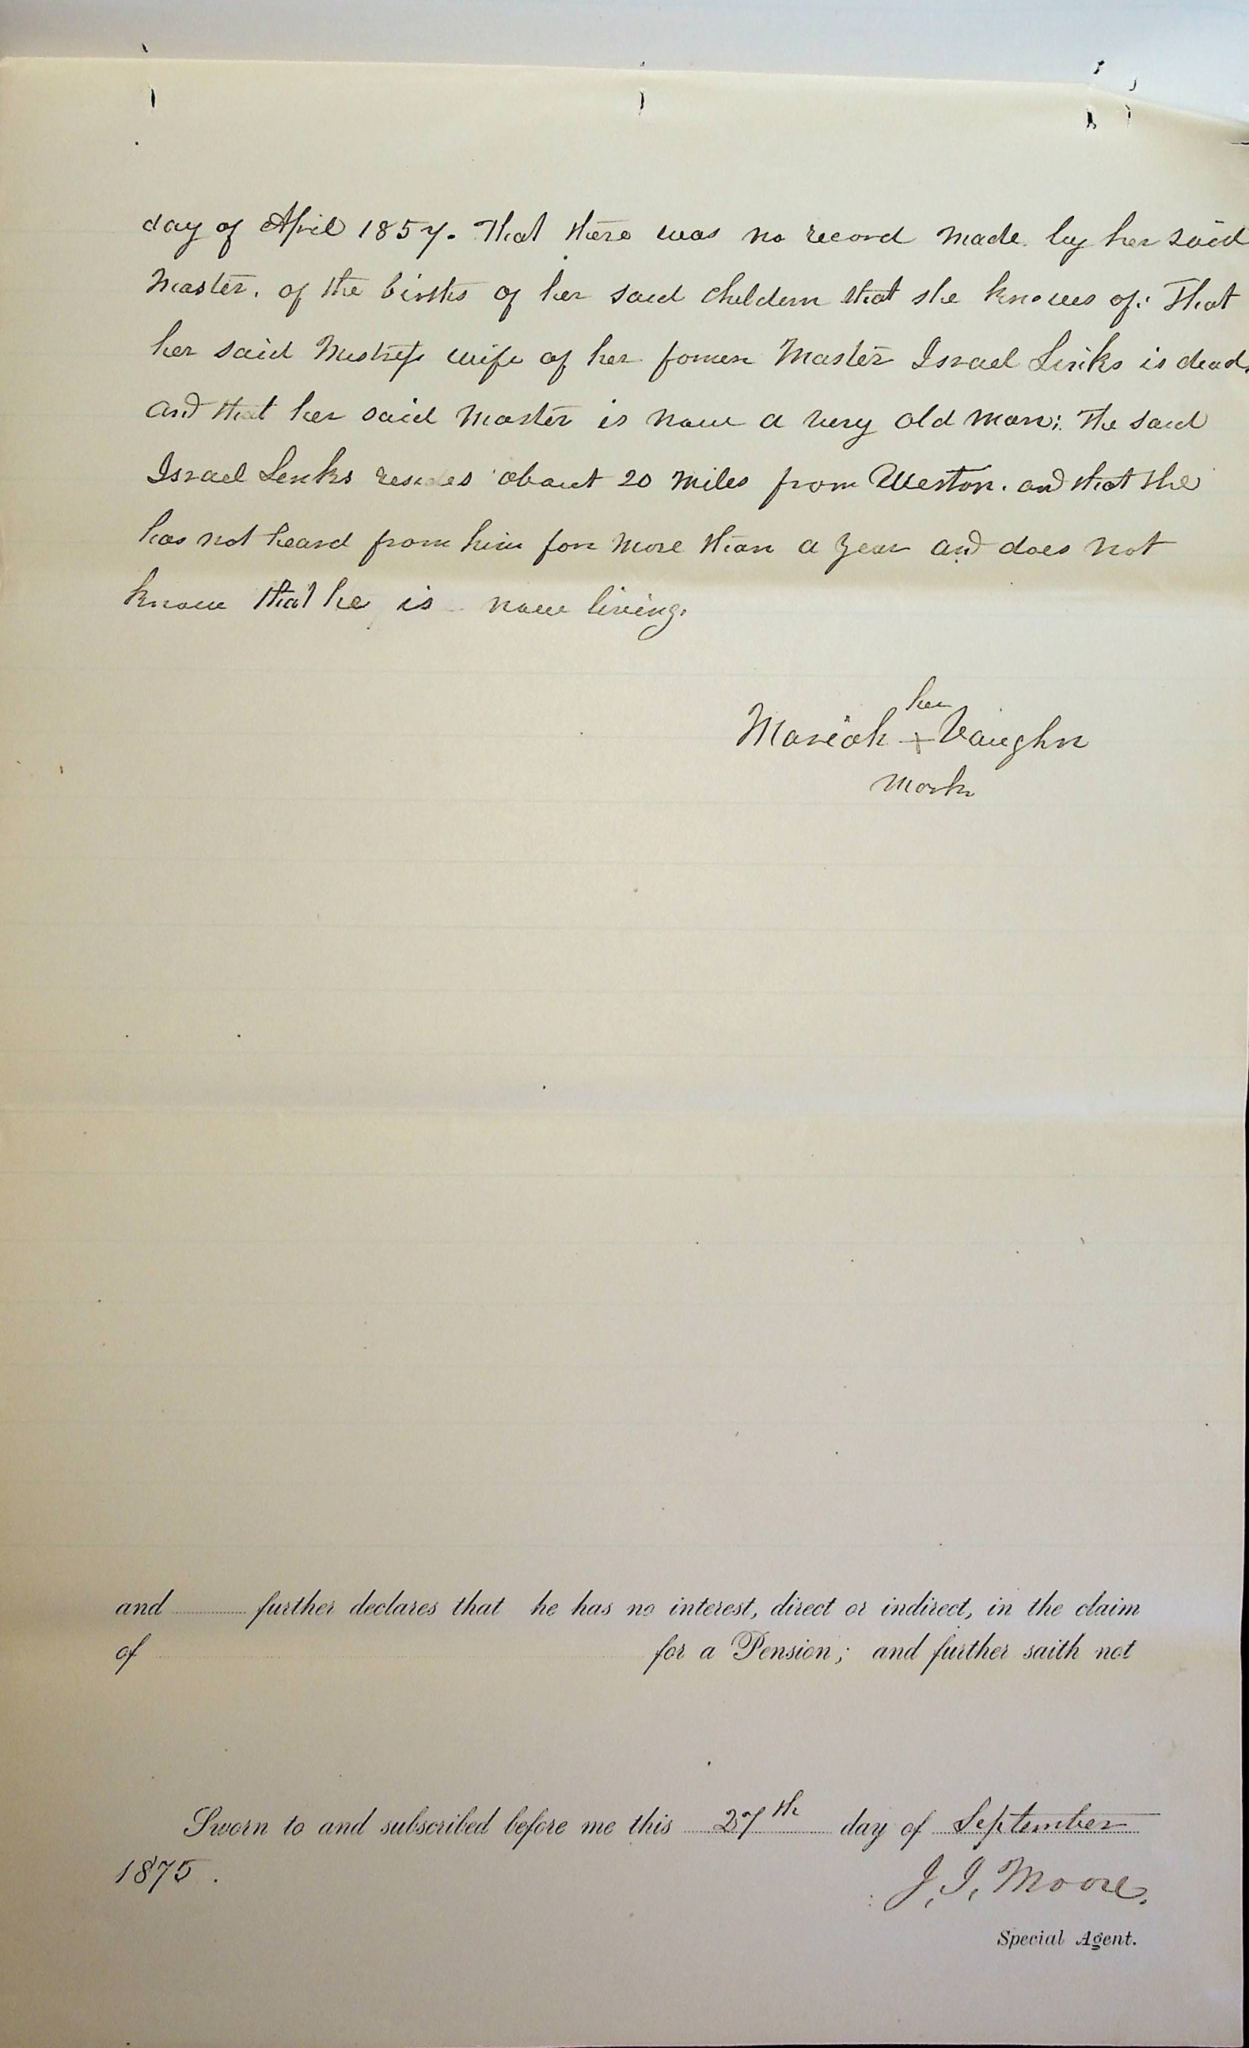 day of April 1857. That there was no record made by her said
Master, of the births of her said childern that she knows of; That
her said Mistress wife of her former Master Israel Links is dead,
and that her said Master is now a very old man; The said
Israel Links resides about 20 miles from Weston. and that she
has not heard from him for more than a year and does not
know that he is now living.
her
Mariah + Vaughn
mark
and further declares that he has no interest, direct or indirect, in the claim
of for a Pension; and further saith not
Sworn to and subscribed before me this 27th day of September
1875.
J. J. Moore,
Special Agent.